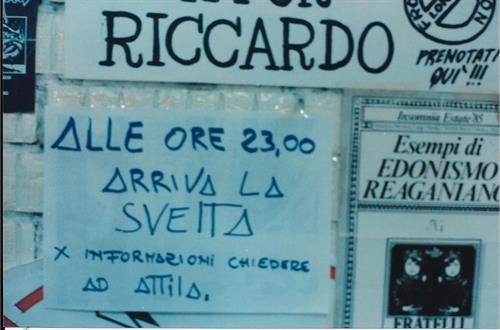 RICCARDO
PRENOTATI
QUI'!!!
ALLE ORE 23,00
ARRIVA LA
SVELTA
X INFORMAZIONI CHIEDERE
AD ATTILA.
Insomnia Estate '85
Esempi di
EDONISMO
REAGANIANO
FRATELLI